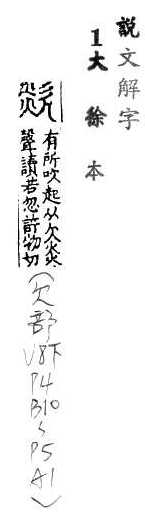 説文解字
1大徐本
有所吹起从欠炎
聲讀若忽許物切
(欠部
V8下
P4
B10
~
P5
A1)